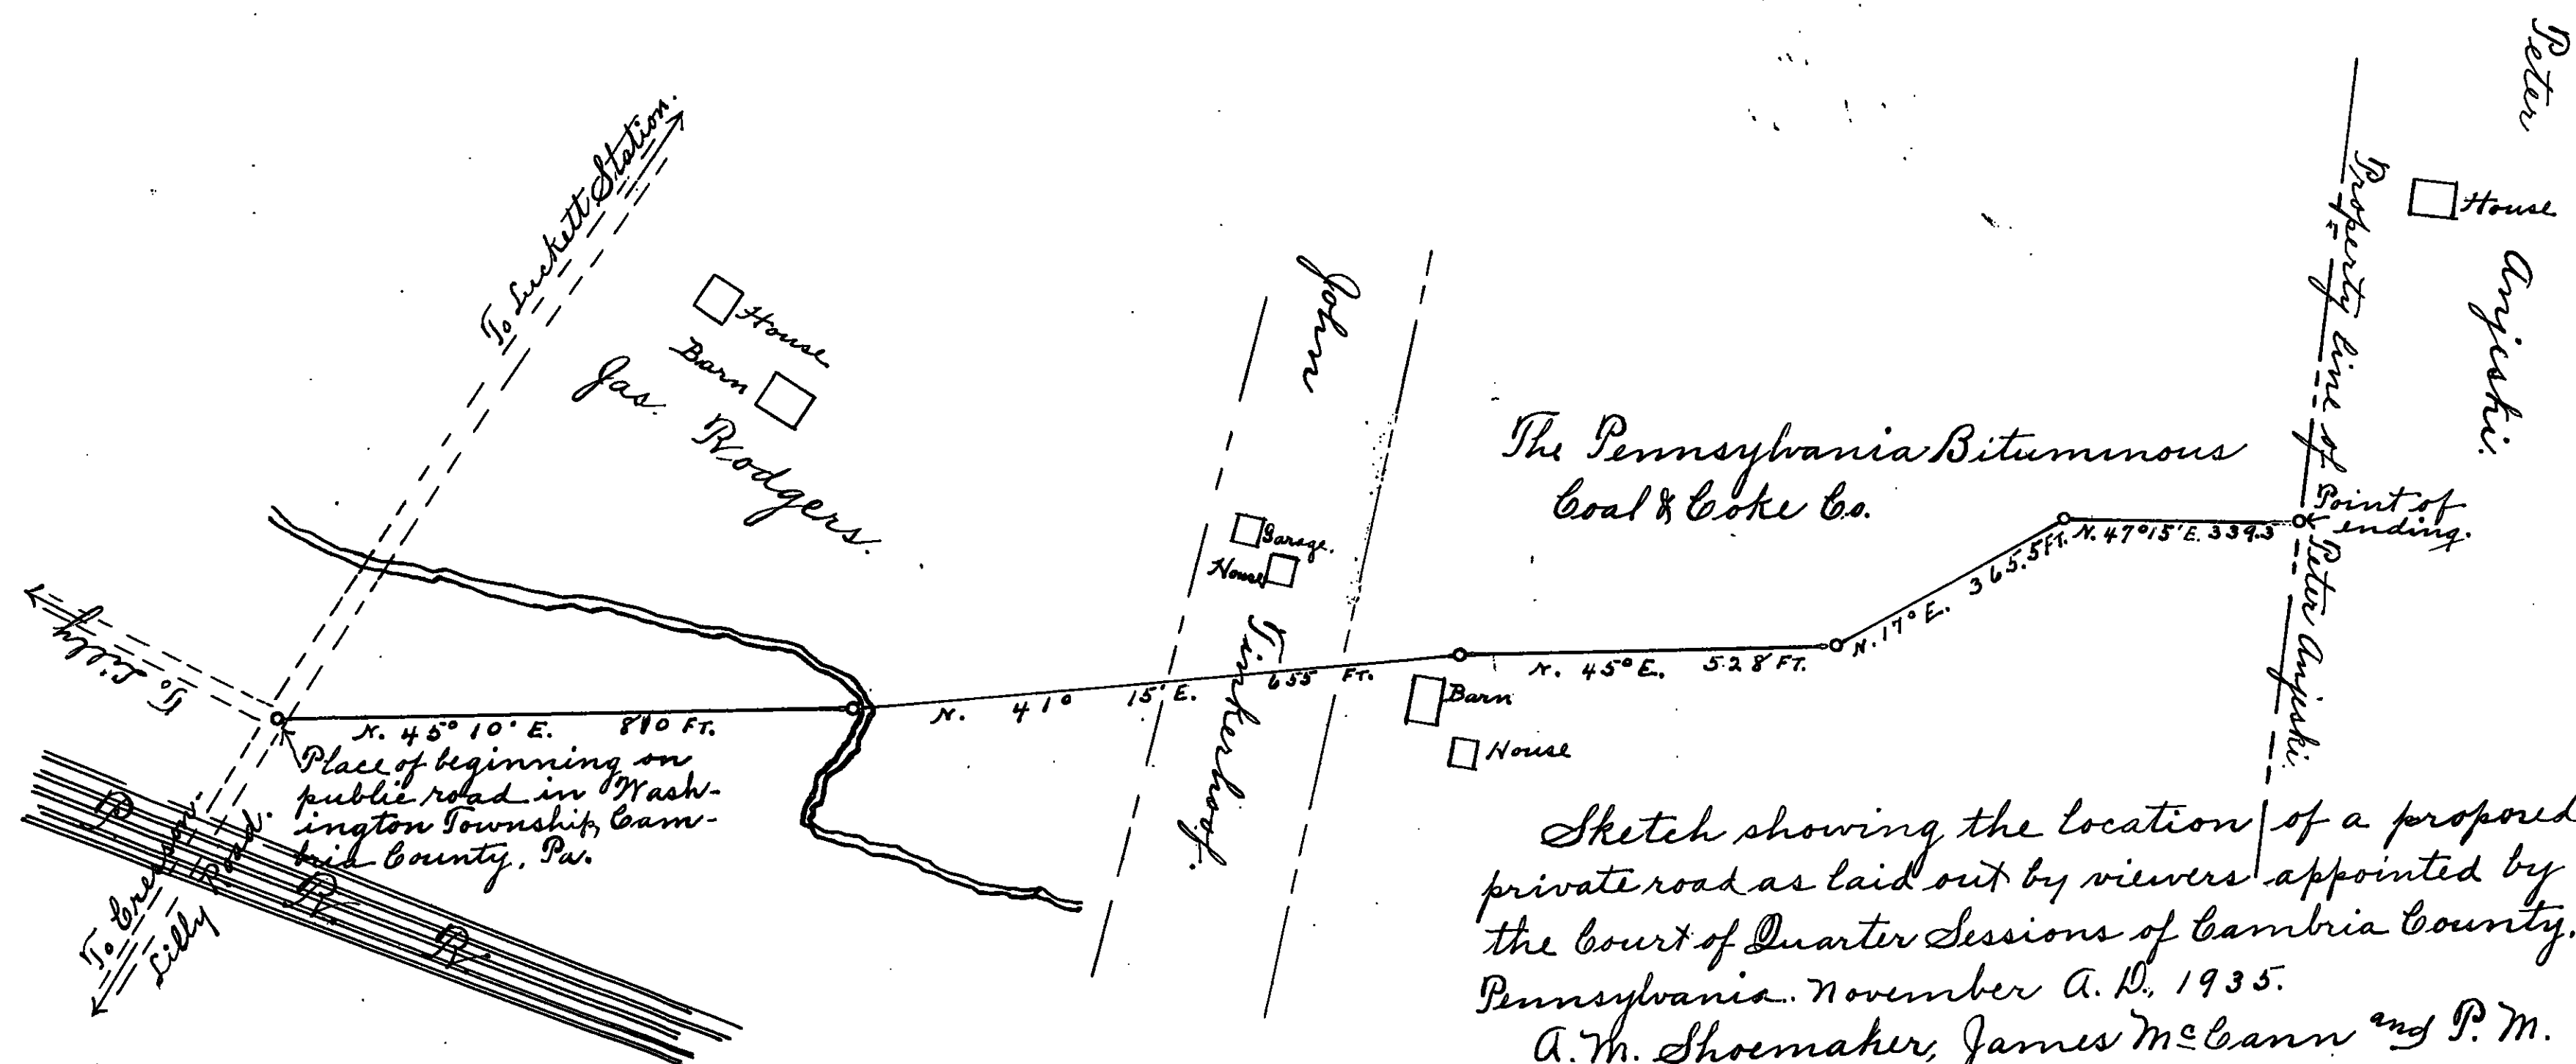 To Luckett Station.
House
Barn
Jas. Rodgers.
To Lilly
To Cresson.
Lilly Road.
P. R. R.
N. 45° 10' E. 810 FT.
Place of beginning on
public road in Wash-
ington Township, Cam-
bria County, Pa.
N. 41° 15' E. 655 FT.
John Tinkerhoof.
Garage.
House
Barn
House
The Pennsylvania Bituminous
Coal & Coke Co.
N. 45° E. 528 FT.
N. 17° E. 365.5 FT.
N. 47° 15' E. 339.3
Point of
ending.
Property line of Peter Anjeski.
House
Peter Anjeski.
Sketch showing the location of a proposed
private road as laid out by viewers appointed by
the Court of Quarter Sessions of Cambria County,
Pennsylvania. November A. D., 1935.
A. M. Shoemaker, James McCann and P. M.